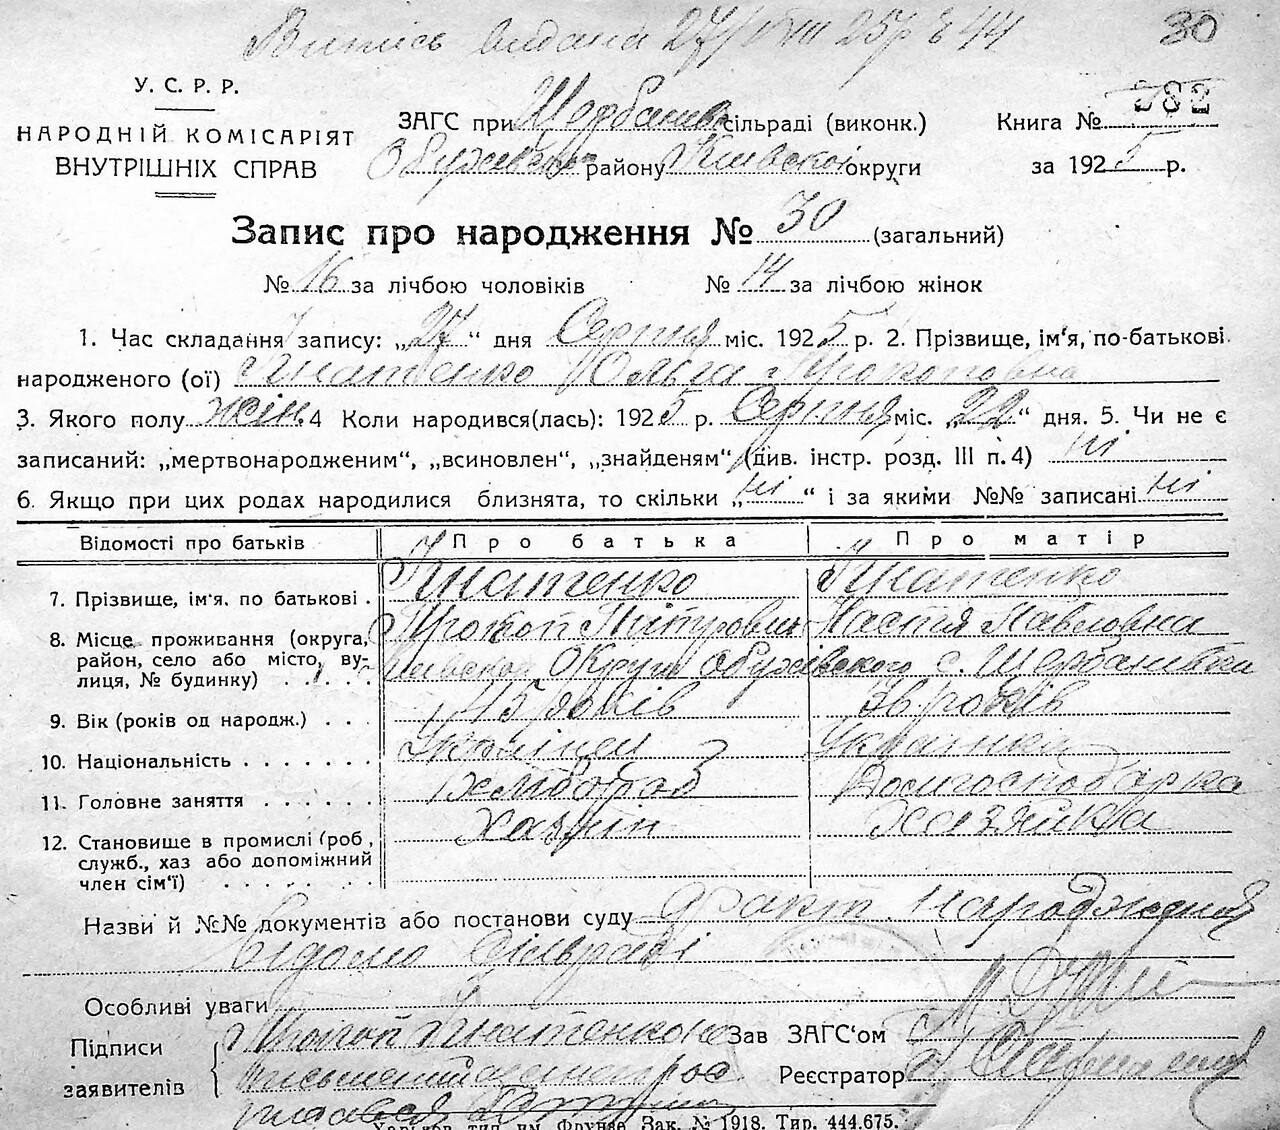 Випись видана 27/VIII 25р 30
У. С. Р. Р.
НАРОДНІЙ КОМІСАРІЯТ
ВНУТРІШНІХ СПРАВ
ЗАГС при сільраді (виконк.)
району Київскої округи
Книга № 382
за 1925 р.
Запис про народження № 30 (загальний)
№ 16 за лічбою чоловіків № 14 за лічбою жінок
1. Час складання запису: „27“ дня Серпня міс. 1925 р. 2. Прізвище, ім‘я, по-батькові
народженого (ої) Гнатенко Ольга Прокоповна
3. Якого полу жін. 4 Коли народився(лась): 1925 р. Серпня міс. „22“ дня. 5. Чи не є
записаний: „мертвонародженим“, „всиновлен“, „знайденям“ (див. інстр. розд. III п. 4) ні
6. Якщо при цих родах народилися близнята, то скільки „ні“ і за якими №№ записані ні
Відомості про батьків Про батька Про матір
7. Прізвище, ім‘я, по батькові . Гнатенко Гнатенко
Прокоп Настя Павловна
8. Місце проживання (округа,
район, село або місто, ву-
лиця, № будинку) . . . . . Київскої Округи Обухівского с. Щербанівки
9. Вік (років од народж.) . . . 45 років років
10. Національність . . . . . . . Українец Українка
11. Головне заняття . . . . . . Хлібороб Домгосподарка
12. Становище в промислі (роб,
служб., хаз або допоміжний
член сім‘ї) . . . . . Хазяїн Хазяйка
Назви й №№ документів або постанови суду факт народження
відомо сільраді
Особливі уваги
Підписи
заявителів
Прокоп Гнатенко
Зав ЗАГС‘ом
Реєстратор
Харьков, тип. им. Фрунзе Зак. № 1918. Тир. 444.675.